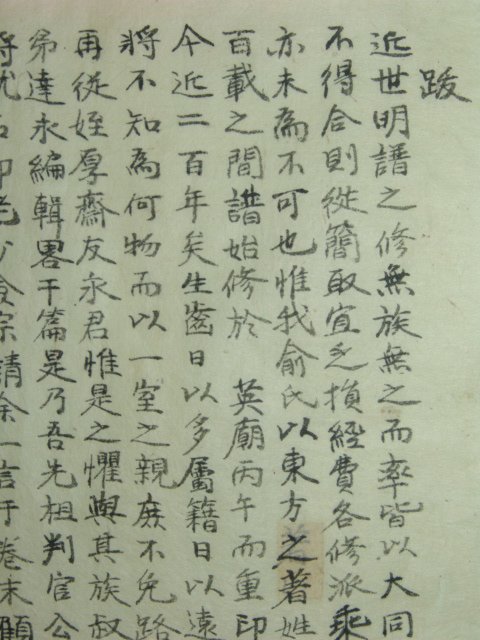 跋
近世明譜之修無族無之而率皆以大同
不得合則從簡取宜乏損經費各修派乘
亦未為不可也惟我俞氏以東方之著姓
百載之間譜始修於 英廟丙午而重印
今近二百年矣生齒日以多屬籍日以遠
將不知為何物而以一室之親庶不免路
再從姪厚齋友永君惟是之懼與其族叔
弟達永編輯畧干篇是乃吾先祖判官公
請余一言于卷末顧